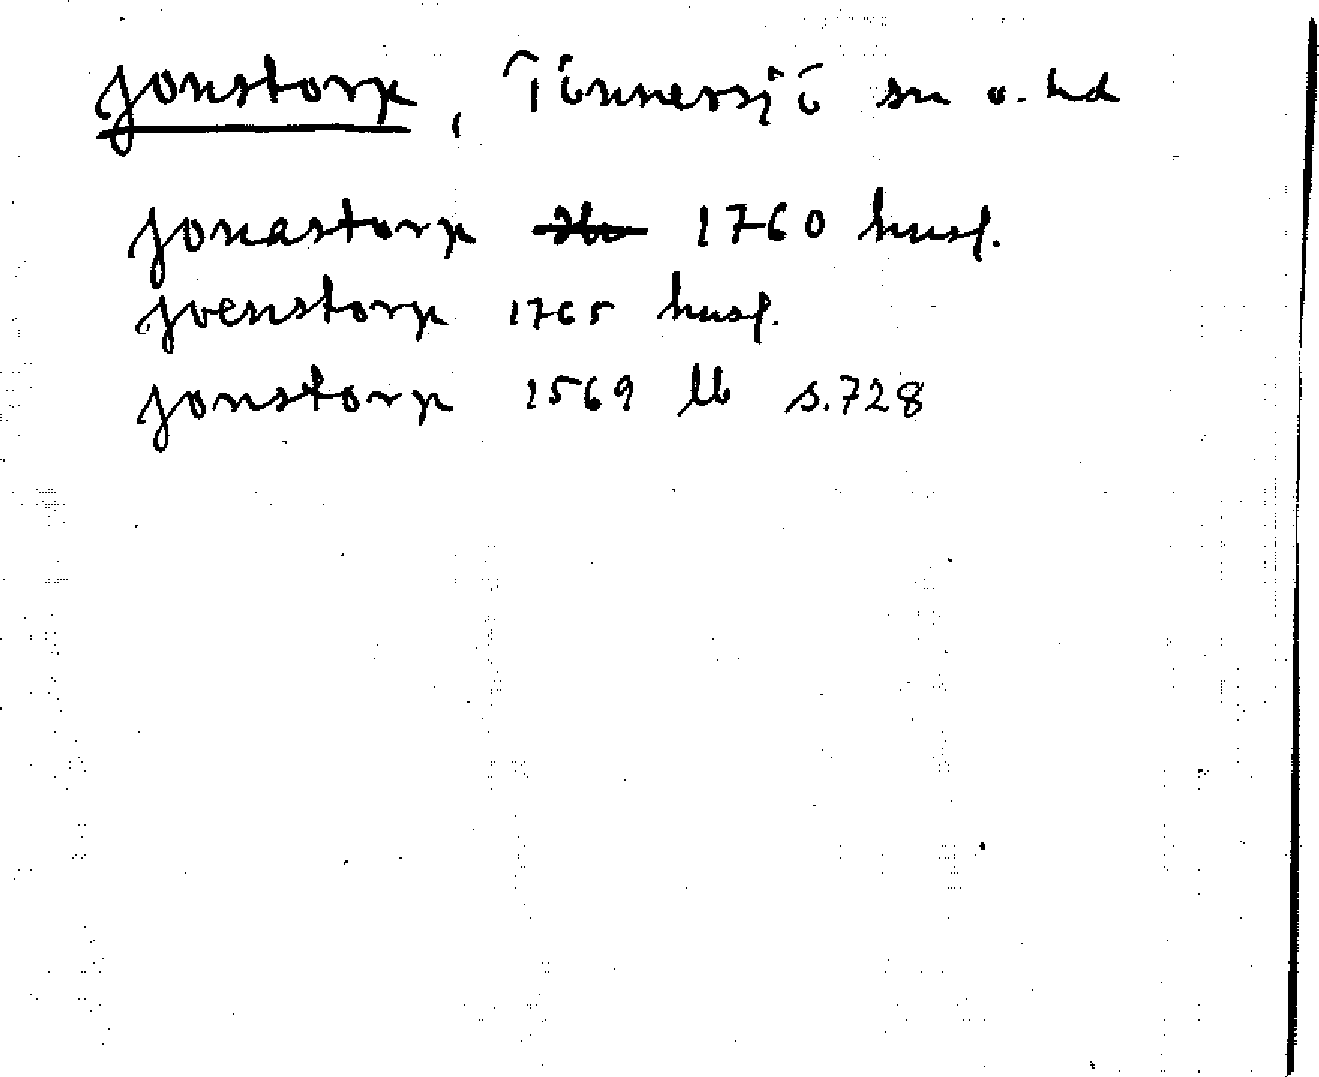 Jonstorp, Tönnersjö sn o. hd
Jonastorp 1760 husf.
Joenstorp 1765 husf.
Jonstorp 1569 lb s.728